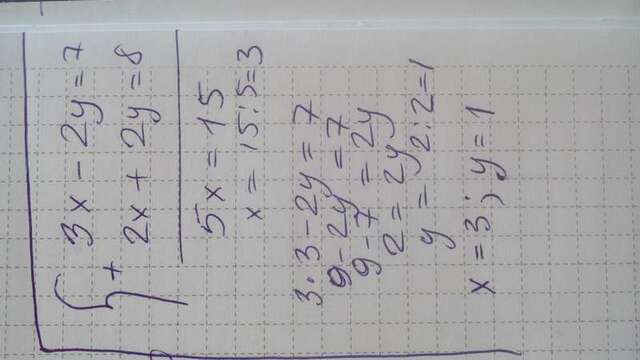 { 3x - 2y = 7
+ 2x + 2y = 8
5x = 15
x = 15 : 5 = 3
3 · 3 - 2y = 7
9 - 2y = 7
9 - 7 = 2y
2 = 2y
y = 2 : 2 = 1
x = 3 ; y = 1